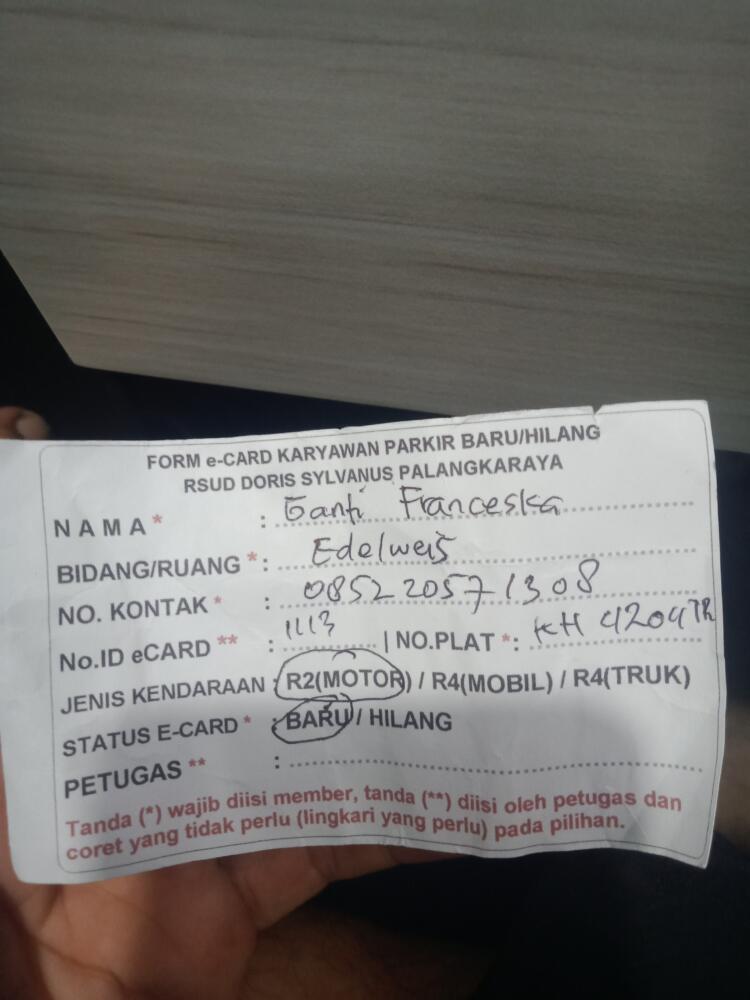 FORM e-CARD KARYAWAN PARKIR BARU/HILANG
RSUD DORIS SYLVANUS PALANGKARAYA
NAMA* : Ganti Franceska
BIDANG/RUANG *: Edelweis
NO. KONTAK * : 085220571308
No.ID eCARD ** : 1113 | NO.PLAT *: KH 4204 TR
JENIS KENDARAAN : R2(MOTOR) / R4(MOBIL) / R4(TRUK)
STATUS E-CARD * : BARU / HILANG
PETUGAS ** :
Tanda (*) wajib diisi member, tanda (**) diisi oleh petugas dan
coret yang tidak perlu (lingkari yang perlu) pada pilihan.